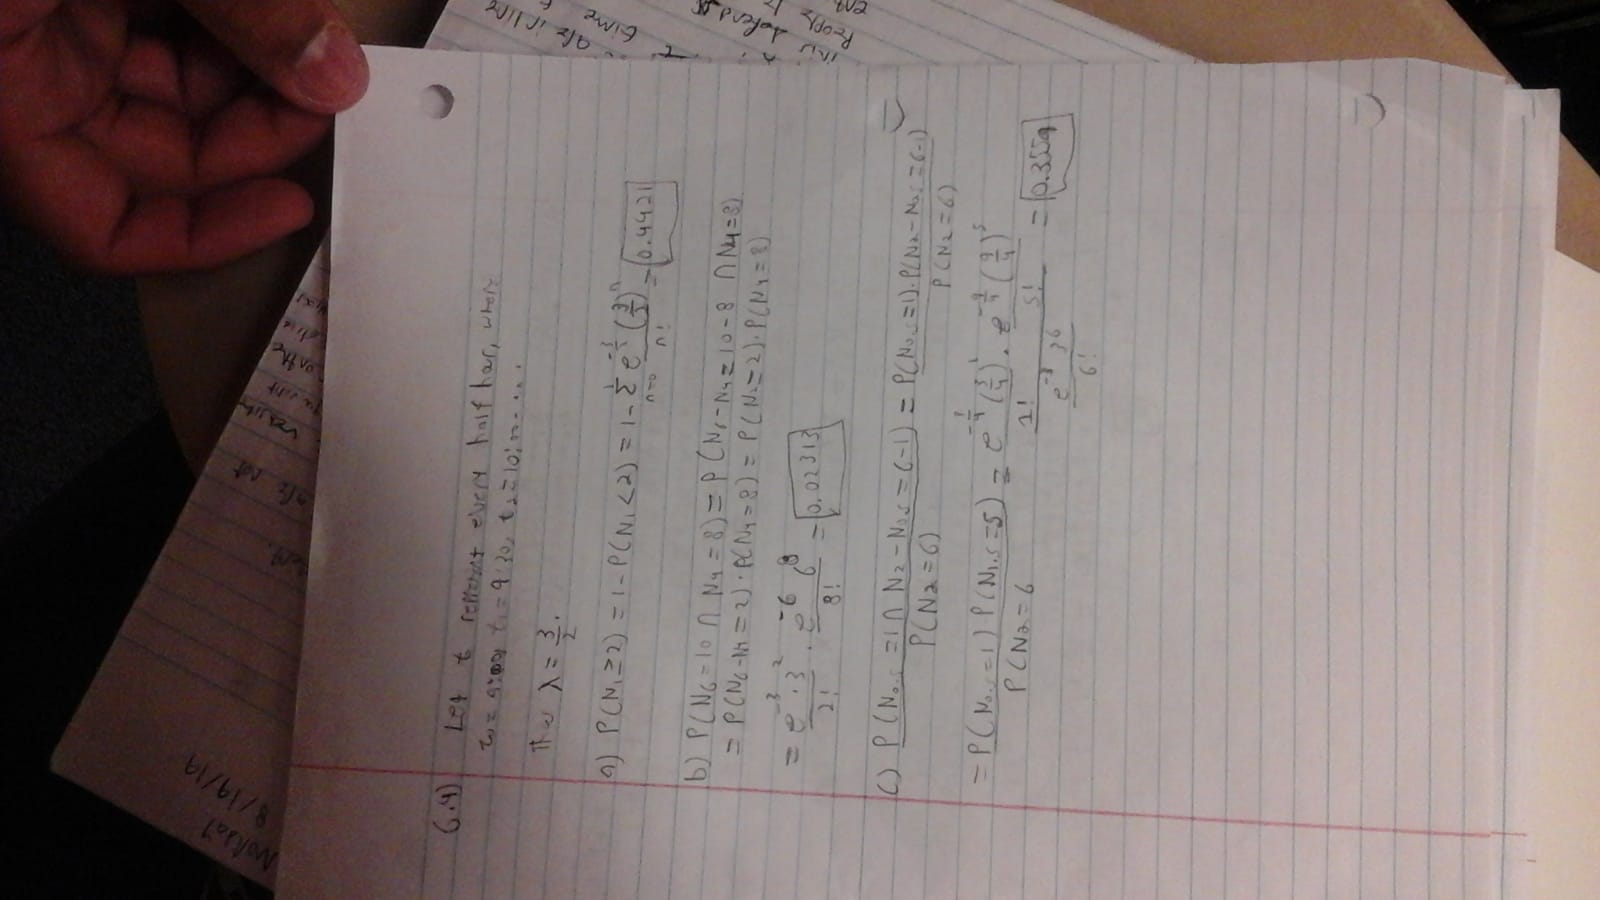 8/19/19
not
on the
6.4) Let t represent every half hour, where
t₀ = 9:00, t₁ = 9:30, t₂ = 10:00 ....
λ = 3/2.
a) P(N₁ ≥ 2) = 1 - P(N₁ < 2) = 1 - Σ_{n=0}^{1} e^{-3/2} (3/2)^n / n! = 0.4421
b) P(N₆ = 10 ∩ N₄ = 8) = P(N₆ - N₄ = 10 - 8 ∩ N₄ = 8)
= P(N₆ - N₄ = 2) · P(N₄ = 8) = P(N₂ = 2) · P(N₄ = 8)
= e^{-3} · 3² / 2! · e^{-6} 6⁸ / 8! = 0.02313
c) P(N₀.₅ = 1 ∩ N₂ - N₀.₅ = 6-1) / P(N₂ = 6) = P(N₀.₅ = 1) · P(N₂ - N₀.₅ = 6-1) / P(N₂ = 6)
= P(N₀.₅ = 1) P(N₁.₅ = 5) / P(N₂ = 6 = e^{-3/4} (3/4)¹ / 1! · e^{-9/4} (9/4)⁵ / 5! / e^{-3} 3⁶ / 6! = 0.3559
time
people